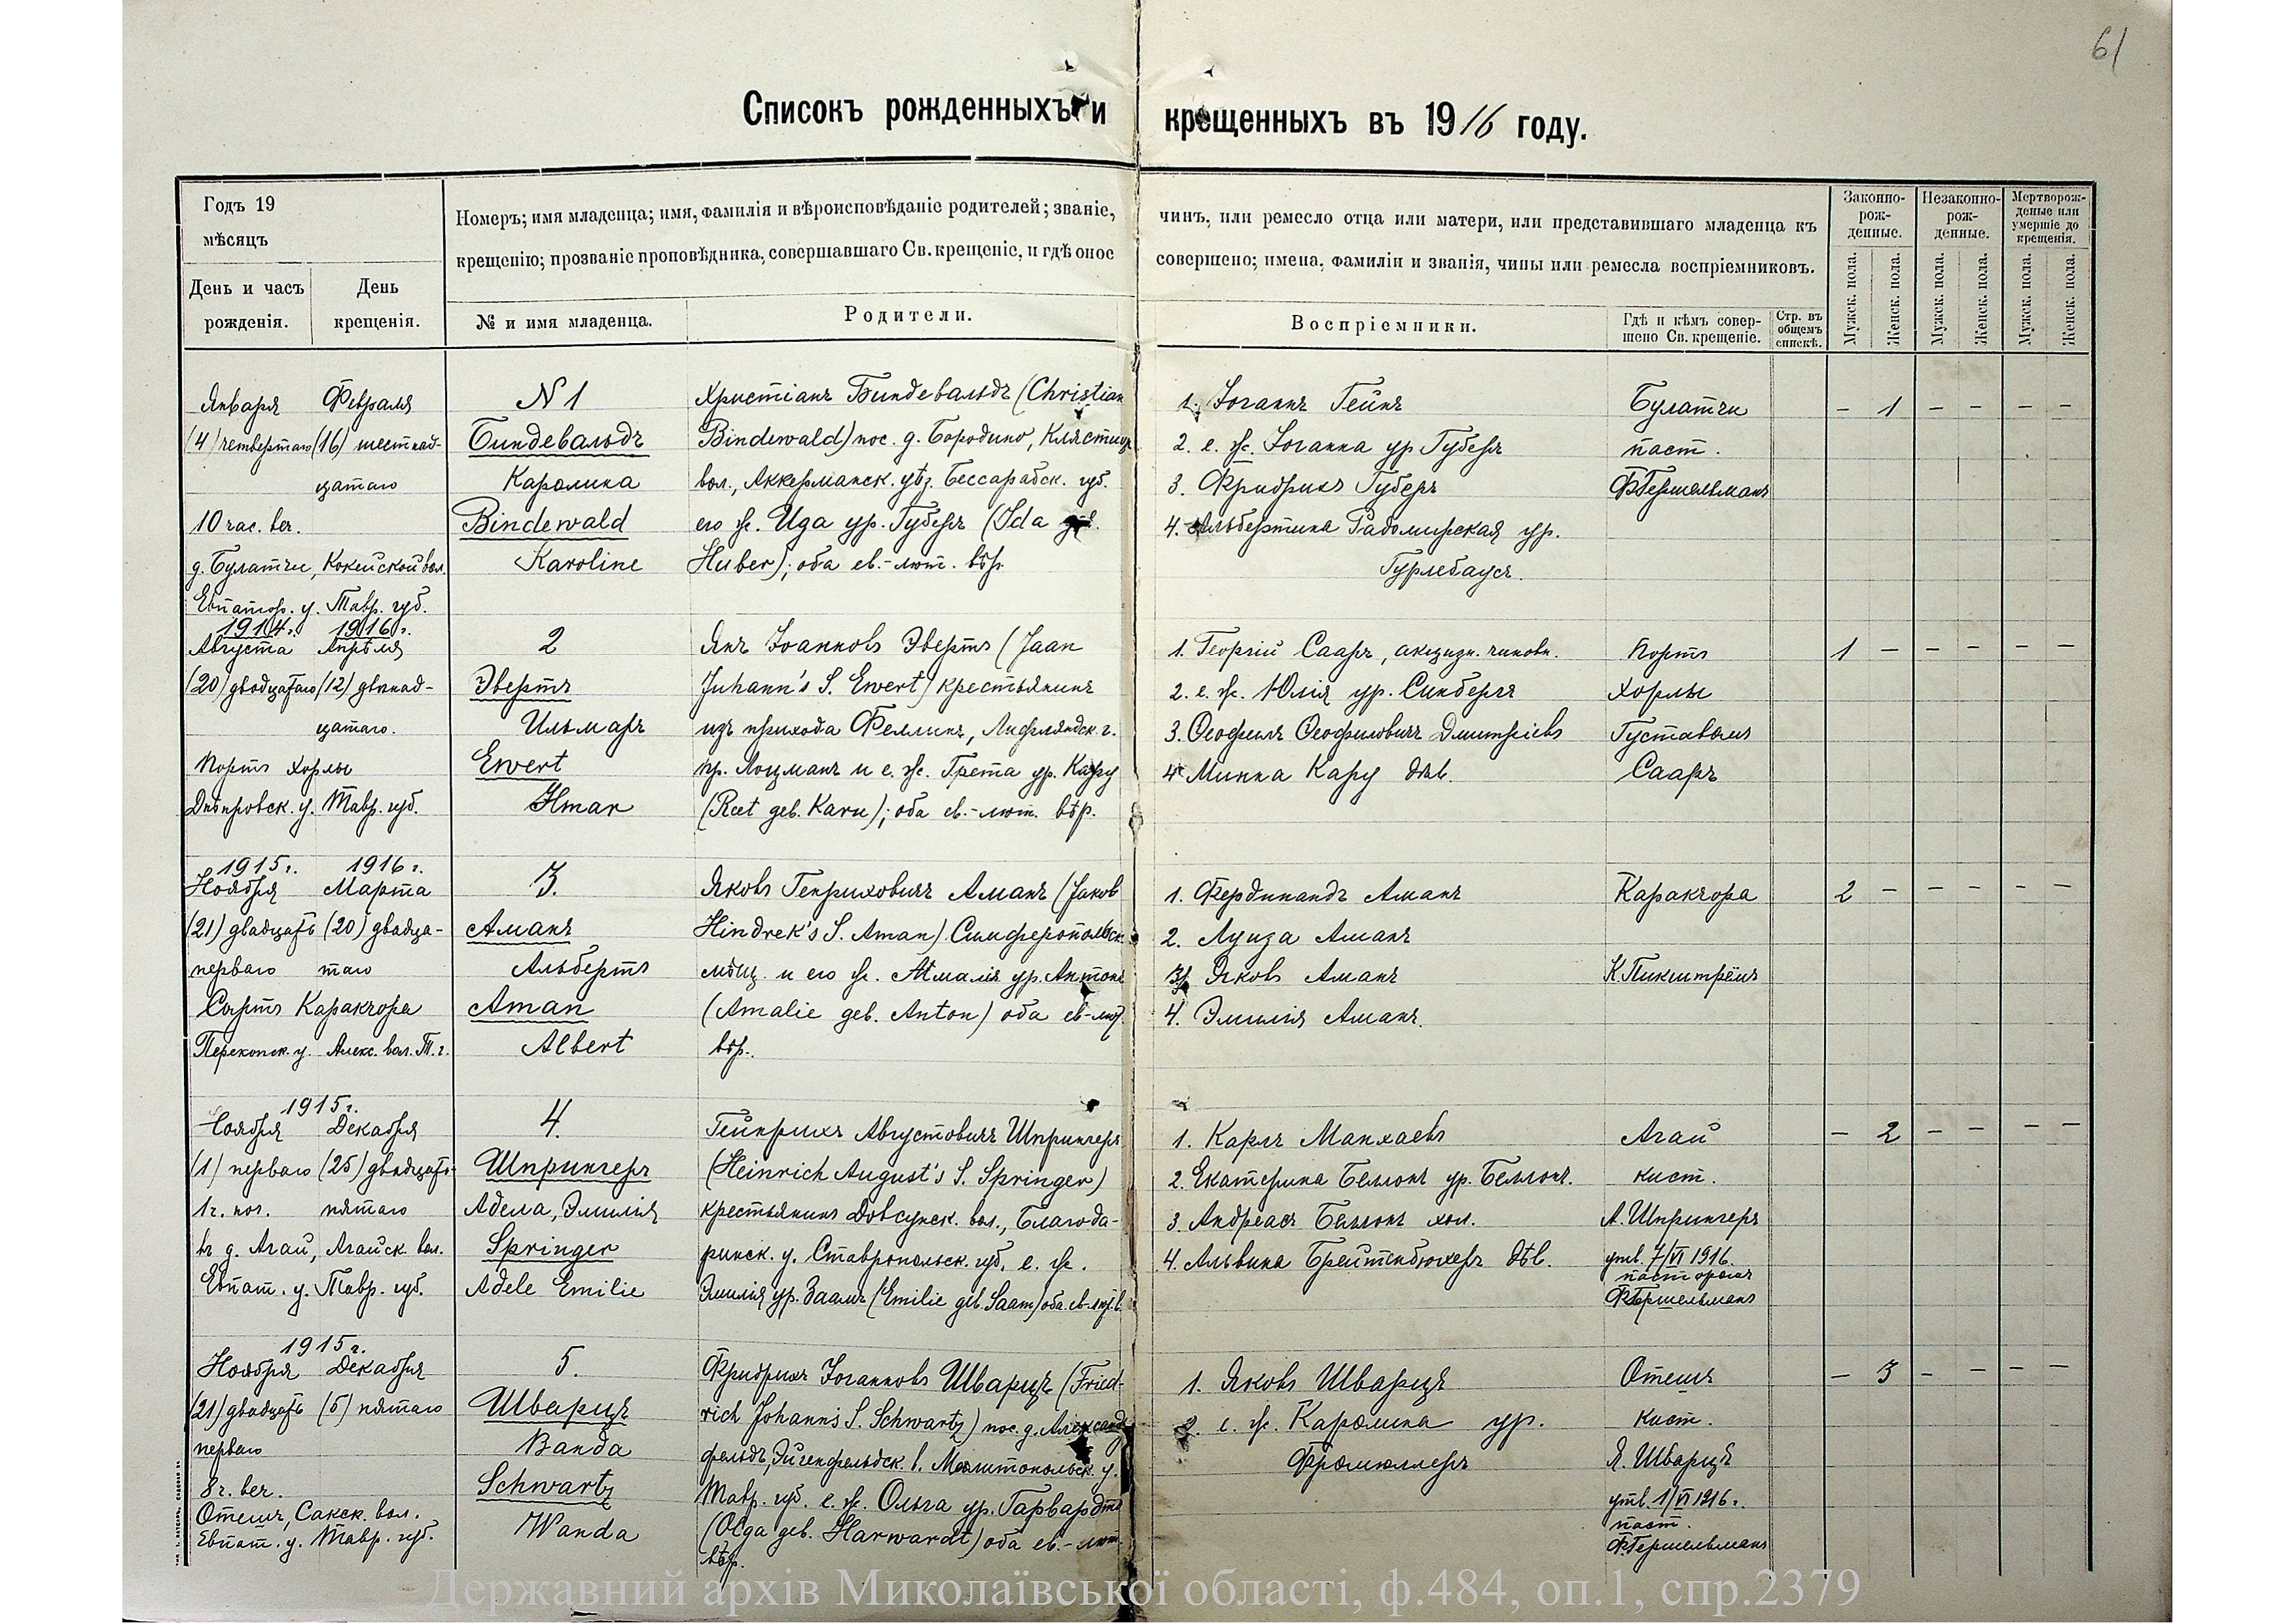 61
Списокъ рожденныхъ и крещенныхъ въ 1916 году.
Годъ 19
мѣсяцъ
День и часъ рожденія.
День крещенія.
Номеръ; имя младенца; имя, фамилія и вѣроисповѣданіе родителей; званіе, чинъ, или ремесло отца или матери, или представившаго младенца къ
крещенію; прозваніе проповѣдника, совершавшаго Св. крещеніе, и гдѣ оное совершено; имена, фамиліи и званія, чины или ремесла воспріемниковъ.
№ и имя младенца.
Родители.
Воспріемники.
Гдѣ и кѣмъ совер-
шено Св. крещеніе.
Стр. въ
общемъ
спискѣ.
Законно-
рож-
денные.
Незаконно-
рож-
денные.
Мертворож-
денные или
умершіе до
крещенія.
Мужск. пола.
Женск. пола.
Мужск. пола.
Женск. пола.
Мужск. пола.
Женск. пола.
Января Февраля
(4) четвертаго (16) шестнад-
цатаго
10 час. веч.
д. Булатчи, Кокейской вол.
Евпатор. у. Тавр. губ.
N 1
Биндевальдъ
Каролина
Bindewald
Karoline
Христіанъ Биндевальдъ (Christian
Bindewald) пос. д. Бородино, Клястицк
вол., Аккерманск. уѣз. Бессарабск. губ.
его ж. Ида ур. Губеръ (Ida geb.
Huber); оба ев.-лют. вѣр.
1. Іоганнъ Гейнъ
2. е. ж. Іоганна ур Губеръ
3. Фридрихъ Губеръ
4. Альбертина Радомирская ур.
Гурлебаусъ.
Булатчи
паст.
Ф Гершельманъ
- 1 - - - -
1914 г. 1916 г.
Августа Апрѣля
(20) двадцатаго (12) двѣнад-
цатаго.
Портъ Хорлы
Днѣпровск. у. Тавр. губ.
2
Эвертъ
Ильмаръ
Ewert
Ilmar
Янъ Іоанновъ Эвертъ (Jaan
Juhann's S. Ewert) крестьянинъ
изъ прихода Феллинъ, Лифляндск. г.
пр. Лоцманъ и е. ж. Грета ур. Кару
(Reet geb. Karu); оба ев.-лют. вѣр.
1. Георгій Сааръ, акцизн. чиновн.
2. е. ж. Юлія ур. Синбергъ
3. Ѳеофилъ Ѳеофиловичъ Дмитріевъ
4. Минна Кару дѣв.
Портъ
Хорлы
Густавомъ
Сааръ
1 - - - - -
1915 г. 1916 г.
Ноября Марта
(21) двадцать (20) двадца-
перваго таго
Сыртъ Каракчора
Перекопск. у. Алекс. вол. Т. г.
3.
Аманъ
Альбертъ
Aman
Albert
Яковъ Генриховичъ Аманъ (Jakob
Hindrek's S. Aman) Симферопольск.
мѣщ. и его ж. Амалія ур. Антонъ
(Amalie geb. Anton) оба ев-лют.
вѣр.
1. Фердинандъ Аманъ
2. Луиза Аманъ
3. Яковъ Аманъ
4. Эмилія Аманъ.
Каракчора
К. Пикштремъ
2 - - - - -
1915 г.
Ноября Декабря
(1) перваго (25) двадцать
1 ч. ноч. пятаго
въ д. Агай, Агайск. вол.
Евпат. у. Тавр. губ.
4.
Шпрингеръ
Адела, Эмилія
Springer
Adele Emilie
Гейнрихъ Августовичъ Шпрингеръ
(Heinrich August's S. Springer)
крестьянинъ Довсунск. вол., Благода-
ринск. у. Ставропольск. губ. е. ж.
Эмилія ур. Заамъ (Emilie geb. Saam) оба ев-лют. в.
1. Карлъ Манхаевъ
2. Екатерина Беллонъ ур. Беллонъ.
3. Андреасъ Беллонъ хол.
4. Альвина Брейтенбюхеръ дѣв.
Агай
кист.
А. Шпрингеръ
утв. 7/VI 1916.
пасторомъ
Ф Гершельманъ
- 2 - - - -
1915 г.
Ноября Декабря
(21) двадцать (5) пятаго
перваго
8 ч. веч.
Отешъ, Сакск. вол.
Евпат. у. Тавр. губ.
5.
Шварцъ
Ванда
Schwartz
Wanda
Фридрихъ Іоганновъ Шварцъ (Fried-
rich Johann's S. Schwartz) пос. д. Александр
фельдъ, Эйгенфельдск. в. Мелитопольск. у.
Тавр. губ. е. ж. Ольга ур. Гарвардтъ
(Olga geb. Harwardt) оба ев.-лют.
вѣр.
1. Яковъ Шварцъ
2. е. ж. Каролина ур.
Фромюллеръ
Отешъ
кист.
Я. Шварцъ
утв. 1/VI 1916 г.
паст.
Ф. Гершельманъ
- 3 - - - -
Державний архів Миколаївської області, ф.484, оп.1, спр.2379